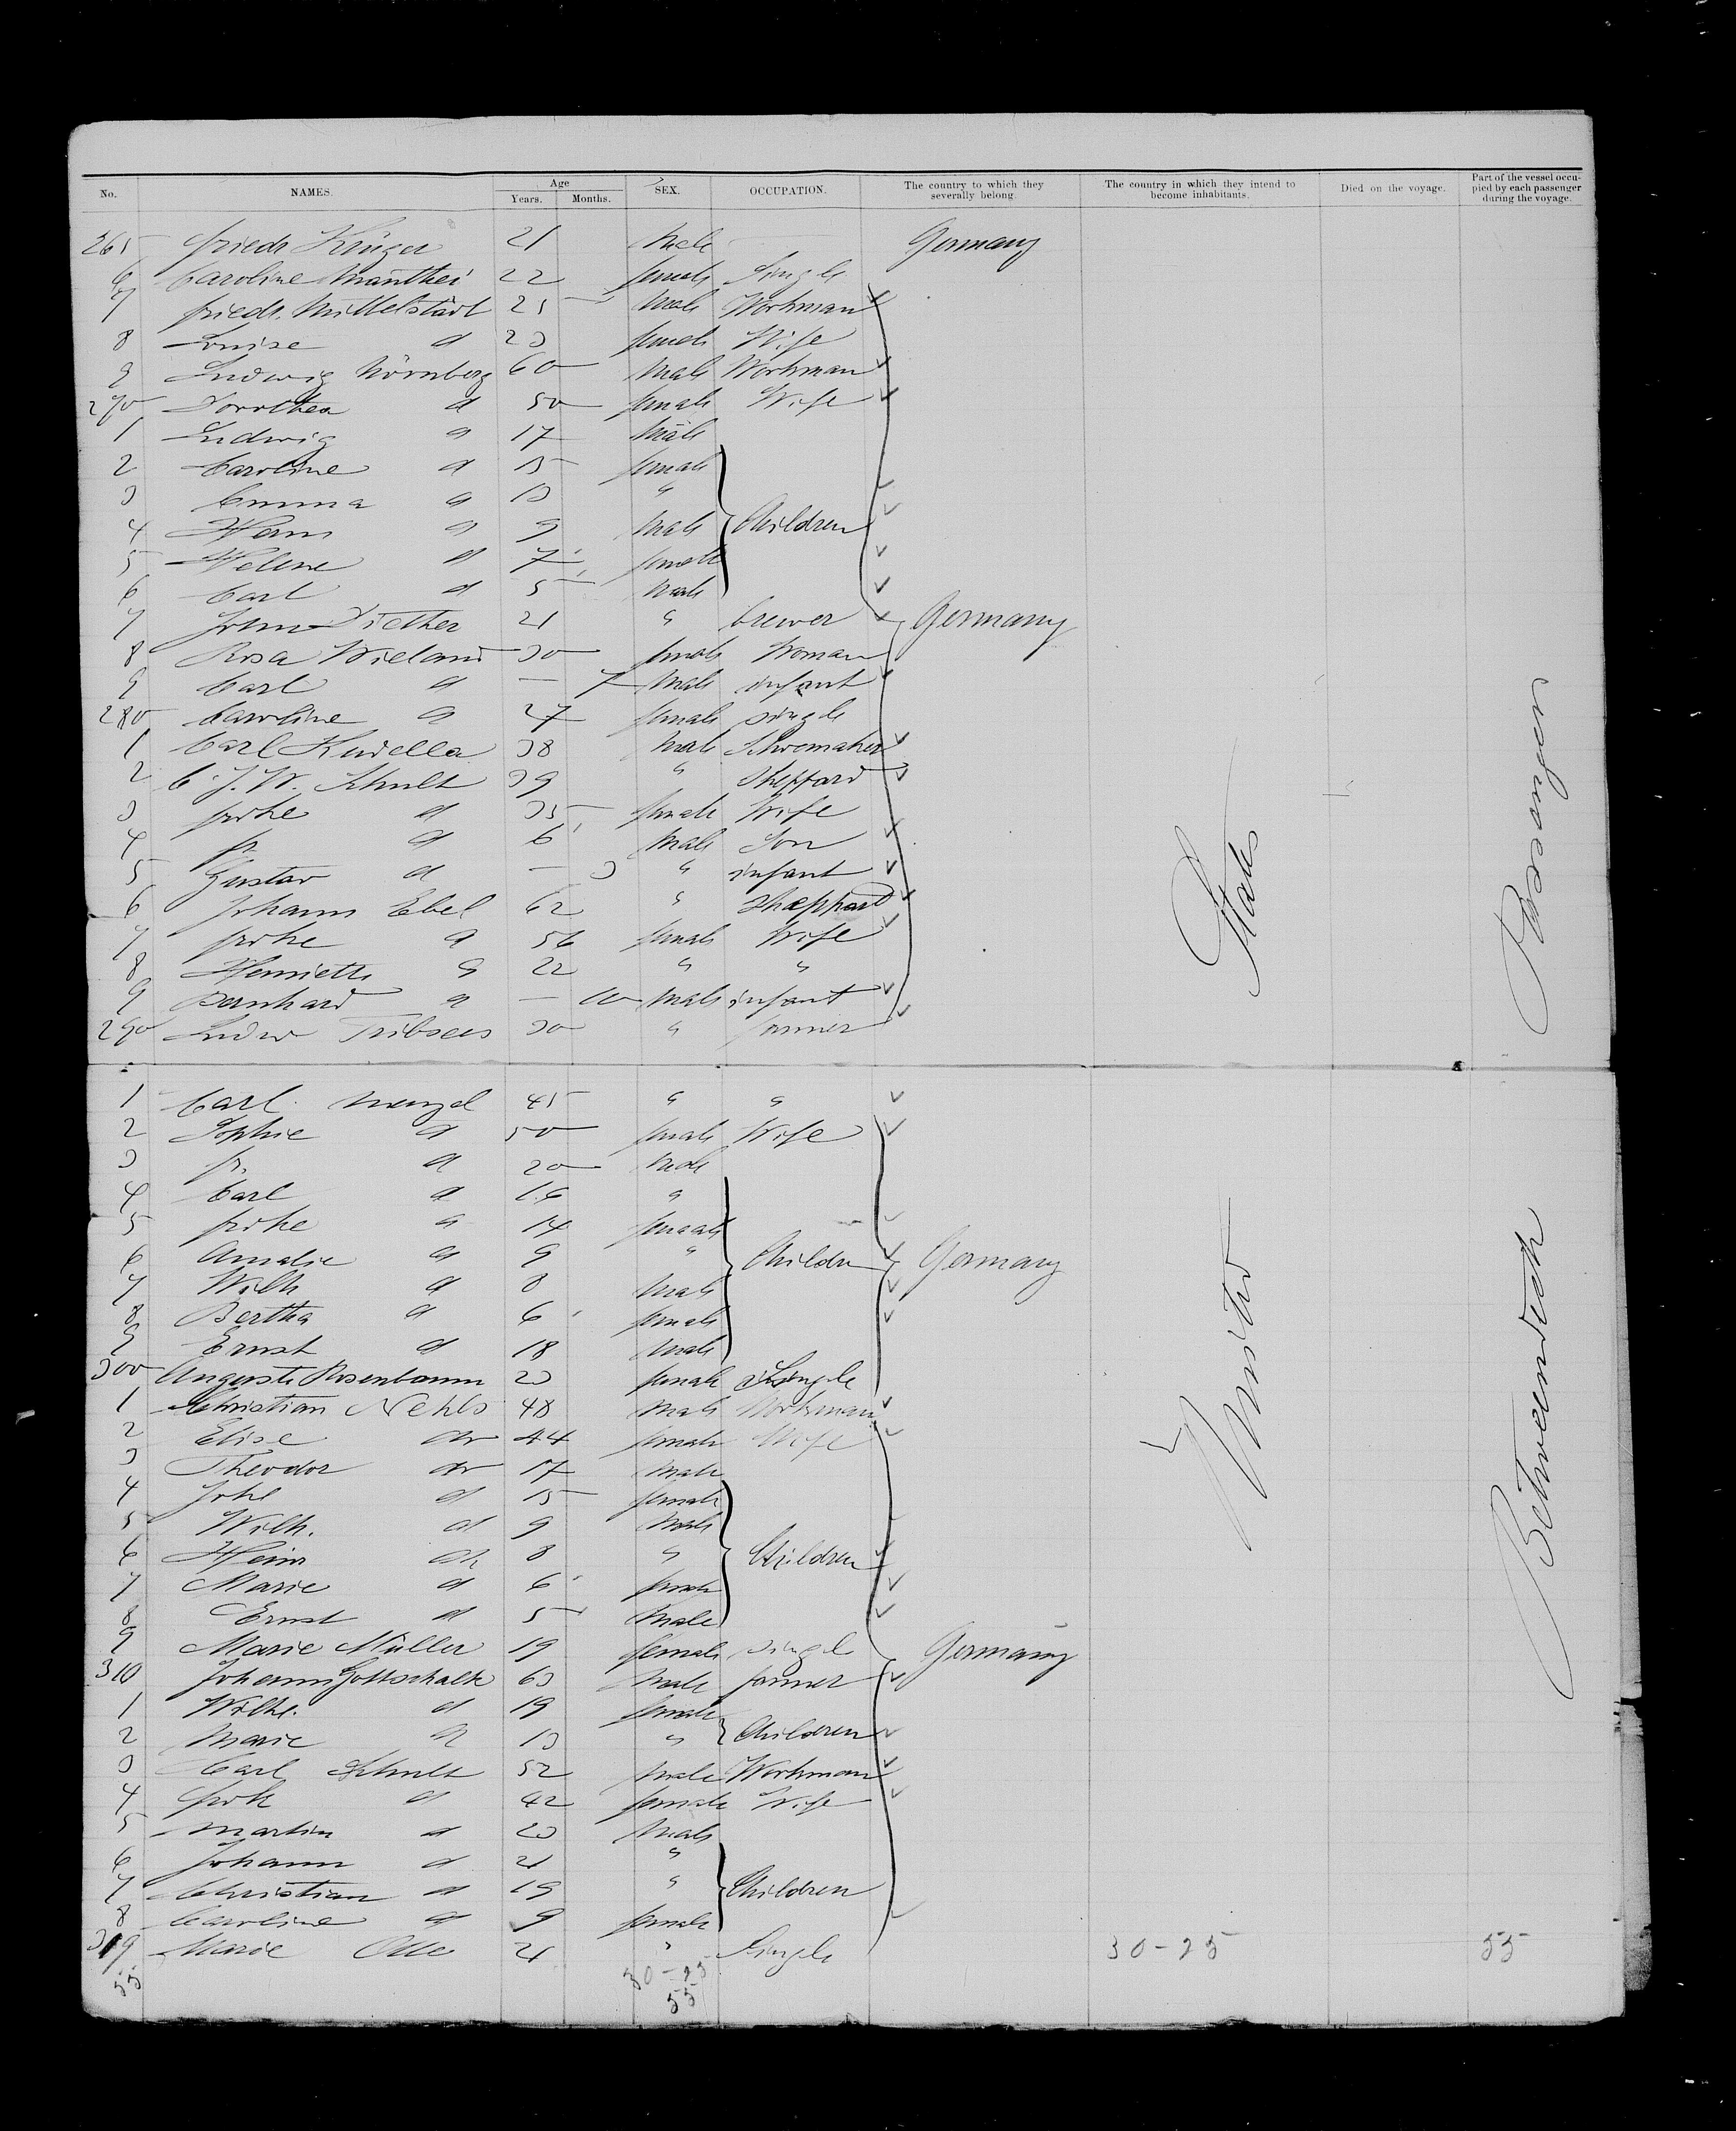 No. NAMES. Age Years. Months. SEX. OCCUPATION. The country to which they severally belong. The country in which they intend to become inhabitants. Died on the voyage. Part of the vessel occupied by each passenger during the voyage.
265 Friedr Krüger 21 Male Germany
6 Caroline Manthei 22 female Single
7 Friedr. Mittelstädt 25 Male Workman
8 Louise d 23 female Wife
9 Ludwig Nörnberg 60 Male Workman
270 Dorothea d 50 female Wife
1 Ludwig d 17 Male
2 Caroline d 15 female
3 Emma d 13 "
4 Herm d 9 Male Children
5 Helene d 7 female
6 Carl d 5 Male
7 John Diether 21 " brewer Germany
8 Rosa Wieland 30 female Woman
9 Carl d — 7 Male infant
280 Caroline d 27 female single
1 Carl Kudella 38 Male Schoemaker
2 C. J. W. Schult 39 " Sheppard
3 frike d 35 female Wife
4 fr d 6 Male Son
5 Gustav d — 3 " infant
6 Johann Ebel 62 " Shæppard
7 frike d 56 female Wife
8 Henriette d 22 " "
9 Bernhard d — 10 Male infant
290 Ludw Tribsees 30 " farmer
1 Carl Menzel 45 " "
2 Sophie d 50 female Wife
3 fr. d 20 Male
4 Carl d 16 "
5 frike d 14 female
6 Amalie d 9 " Childre Germany
7 Wilh d 8 Male
8 Bertha d 6 female
9 Ernst d 18 Male
300 Auguste Rosenbaum 23 female Single
1 Christian Nehls 48 Male Workman
2 Elise do 44 female Wife
3 Theodor do 17 Male
4 Johe d 15 female
5 Wilh. d 9 Male
6 Heinr do 8 " Children
7 Marie d 6 female
8 Ernst d 5 Male
9 Marie Müller 19 female single Germany
310 Johann Gottschalk 63 Male farmer
1 Wilhe. d 19 female
2 Marie d 13 " Children
3 Carl Schult 52 Male Workman
4 frike d 42 female Wife
5 Martin d 23 Male
6 Johann d 21 "
7 Christian d 19 " Children
8 Caroline d 9 female
319 Marie Otte 21 " Single 30-25 55
55 30-25
55
United States
Betweendeck Passengers